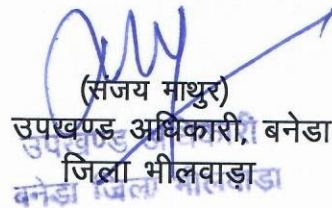 (संजय माथुर)
उपखण्ड अधिकारी, बनेडा
जिला भीलवाड़ा
उपखण्ड अधिकारी
बनेडा जिला भीलवाडा